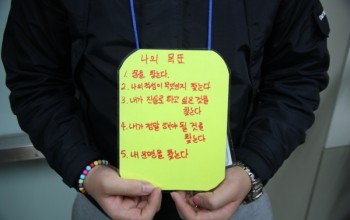 나의 목표
1. 꿈을 찾는다.
2. 나의 적성이 무엇인지 찾는다
3. 내가 진실로 하고 싶은 것을
찾는다
4. 내가 정말 해야 될 것을
찾는다
5. 내 문제를 찾는다